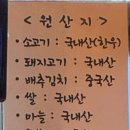 <원산지>
• 소고기 : 국내산(한우)
• 돼지고기 : 국내산
• 배추김치 : 중국산
• 쌀 : 국내산
• 마늘 : 국내산